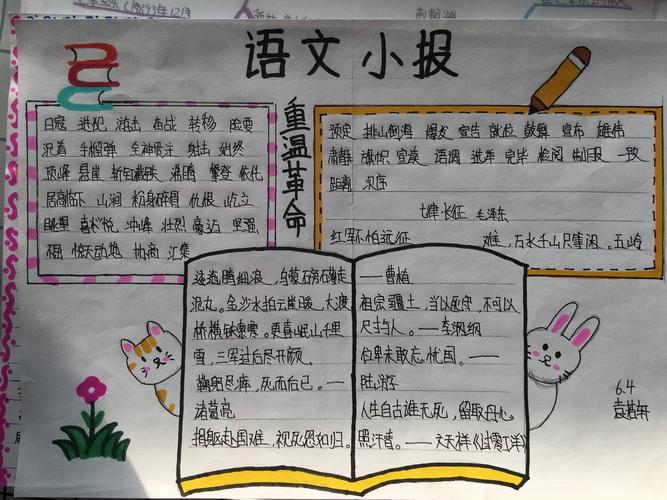 语文小报
重温革命
日寇 进犯 游击 奋战 转移 险要
沉着 手榴弹 全神贯注 射击 始终
顶峰 悬崖 斩钉截铁 沸腾 攀登 依托
居高临下 山涧 粉身碎骨 仇恨 屹立
眺望 喜悦 冲峰 壮烈 豪迈 坚强
不屈 惊天动地 协商 汇集
预定 排山倒海 爆发 宣告 就位 鼓舞 宣布 雄伟
肃静 旗帜 宣读 语调 选举 完毕 检阅 制服 一致
距离 次序
七律·长征 毛泽东
红军不怕远征难,万水千山只等闲。五岭
逶迤腾细浪,乌蒙磅礴走
泥丸。金沙水拍云崖暖,大渡
桥横铁索寒。更喜岷山千里
雪,三军过后尽开颜。
鞠躬尽瘁,死而后已。——
诸葛亮
捐躯赴国难,视死忽如归。
——曹植
祖宗疆土,当以死守,不可以
尺寸与人。——李湘纲
位卑未敢忘忧国。——
陆游
人生自古谁无死,留取丹心
照汗青。——文天祥《过零丁洋》
6.4